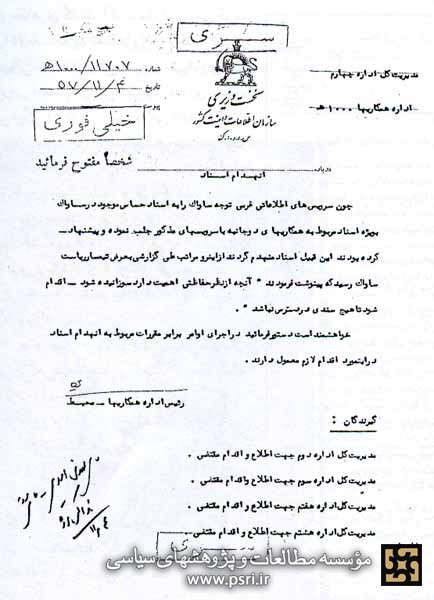 سری
مدیریت کل اداره چهارم
اداره همکاریها ۱۰۰۰ هـ
نخست وزیری
سازمان اطلاعات و امنیت کشور
شماره ۱۰۰۰/۱۱۷۰۷هـ
تاریخ ۵۷/۱۱/۴
پیوست
خیلی فوری
شخصاً مفتوح فرمائید
درباره انهدام اسناد
چون سرویس های اطلاعاتی غرب توجه ساواک را به اسناد حساس موجود در ساواک
بویژه اسناد مربوط به همکاریها ی دوجانبه با سرویسهای مذکور جلب نموده و پیشنهاد
کرده بودند این قبیل اسناد منهدم گردند از اینرو مراتب طی گزارشی بعرض تیمسار ریاست
ساواک رسید که پینوشت فرمودند " آنچه از نظر حفاظتی اهمیت دارد سوزانیده شود — اقدام
شود تا هیچ سندی در دسترس نباشد " .
خواهشمند است دستور فرمائید در اجرای اوامر برابر مقررات مربوط به انهدام اسناد
در اینمورد اقدام لازم معمول دارند .
رئیس اداره همکاریها — محیط
گیرندگان :
مدیریت کل اداره دوم جهت اطلاع و اقدام مقتضی .
مدیریت کل اداره سوم جهت اطلاع و اقدام مقتضی .
مدیریت کل اداره هفتم جهت اطلاع و اقدام مقتضی .
مدیریت کل اداره هشتم جهت اطلاع و اقدام مقتضی .
۱۱/۴
سری
مؤسسه مطالعات و پژوهشهای سیاسی
www.psri.ir